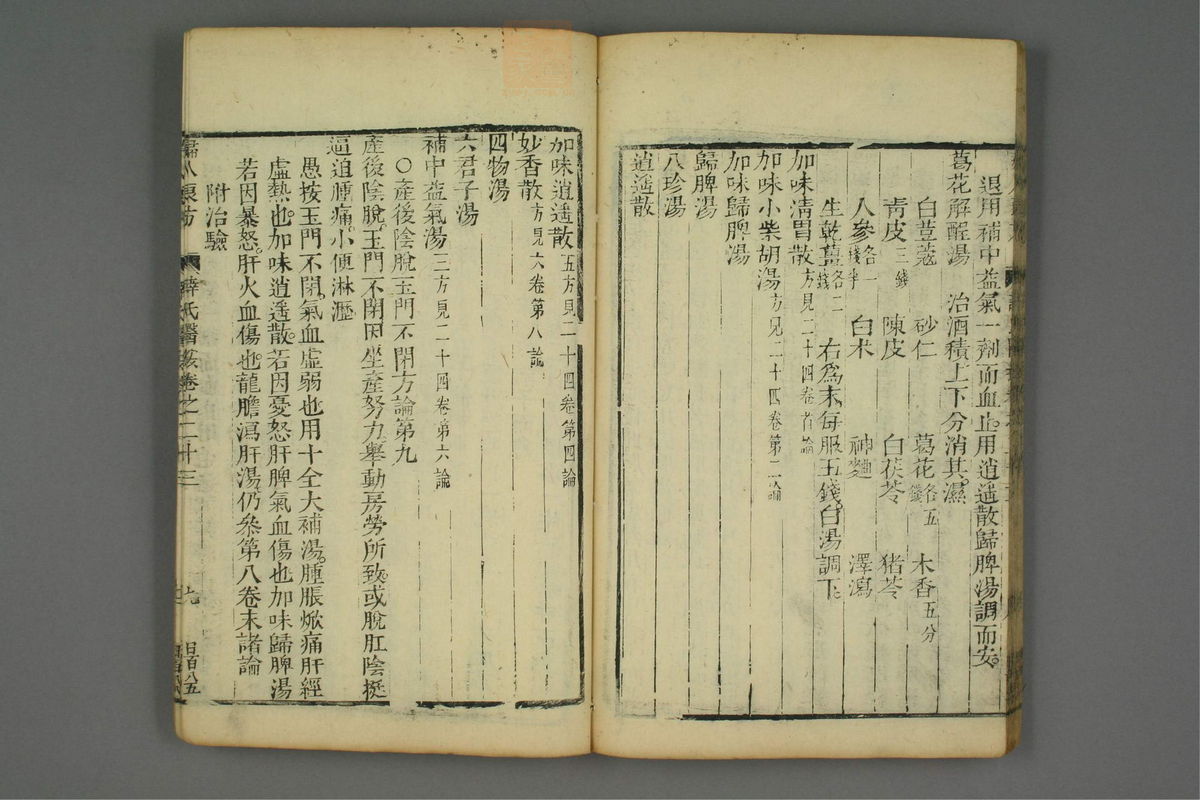 退用補中益氣一劑而血止用逍遥散歸脾湯調而安
葛花解醒湯　治酒積上下分消其濕
白荳蔻　砂仁　葛花各五錢　木香五分
靑皮三錢　陳皮　白茯苓　猪苓
人參各一錢半　白朮　神麯　澤瀉
生乾薑各二錢　右爲末每服五錢白湯調下
加味淸胃散方見二十四卷首論
加味小柴胡湯方見二十四卷第二論
加味歸脾湯
歸脾湯
八珍湯
逍遥散
加味逍遥散五方見二十四卷第四論
妙香散方見六卷第八論
四物湯
六君子湯
補中益氣湯三方見二十四卷第六論
〇產後陰脫玉門不閉方論第九
產後陰脫玉門不閉因坐產努力舉動房勞所致或脫肛陰挺
逼迫腫痛小便淋瀝
愚按玉門不閉氣血虛弱也用十全大補湯腫脹焮痛肝經
虛熱也加味逍遥散若因憂怒肝脾氣血傷也加味歸脾湯
若因暴怒肝火血傷也龍膽瀉肝湯仍叅第八卷末諸論
附治驗
婦人良方　薛氏醫案卷之二十三　九　日百八五